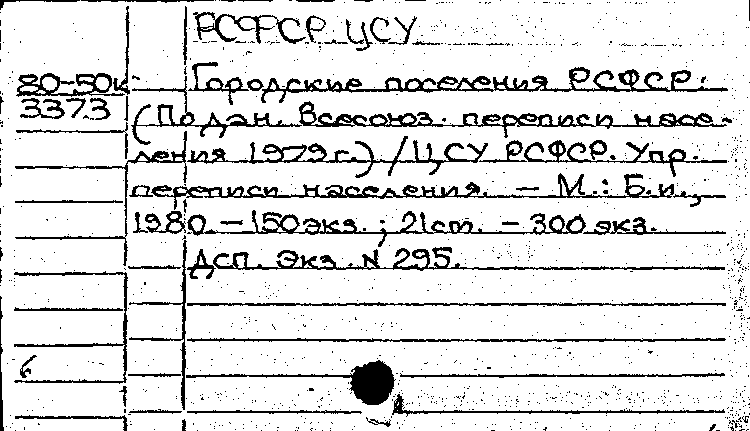 РСФСР. ЦСУ
80-50к
3373
Городские поселения РСФСР:
(По дан. Всесоюз. переписи насе-
ления 1979 г.) / ЦСУ РСФСР. Упр.
переписи населения. — М.: Б.и.,
1980. — 150 экз. ; 21 cm. — 300 экз.
Дсп. Экз. N 295.
6